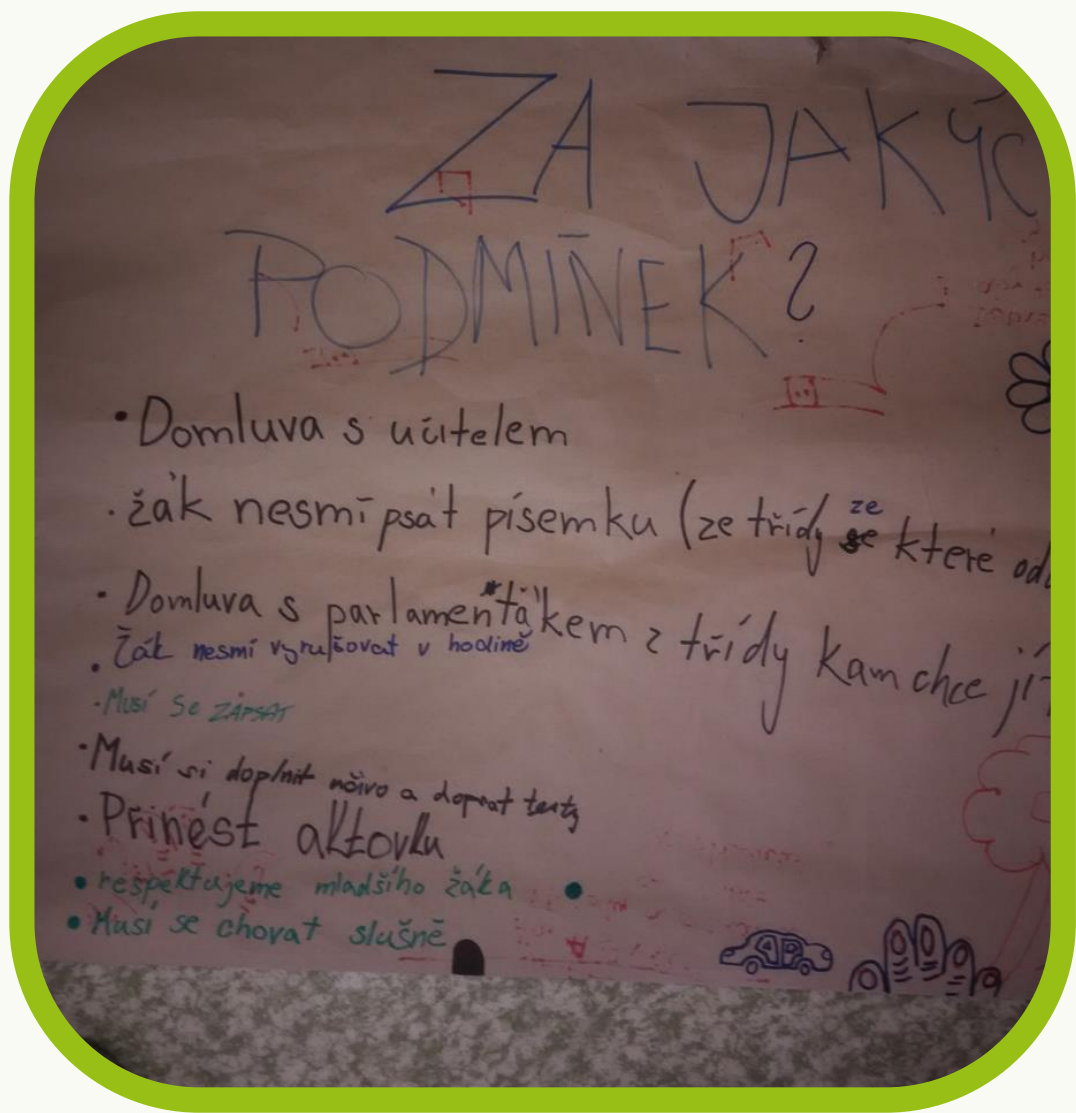 ZA JAKÝC
PODMÍNEK?
• Domluva s učitelem
• žák nesmí psát písemku (ze třídy ze které od
• Domluva s parlamenťákem z třídy kam chce jí
• Žák nesmí vyrušovat v hodině
• Musí se ZAPSAT
• Musí si doplnit učivo a dopsat testy
• Přinést aktovku
• respektujeme mladšího žáka
• Musí se chovat slušně